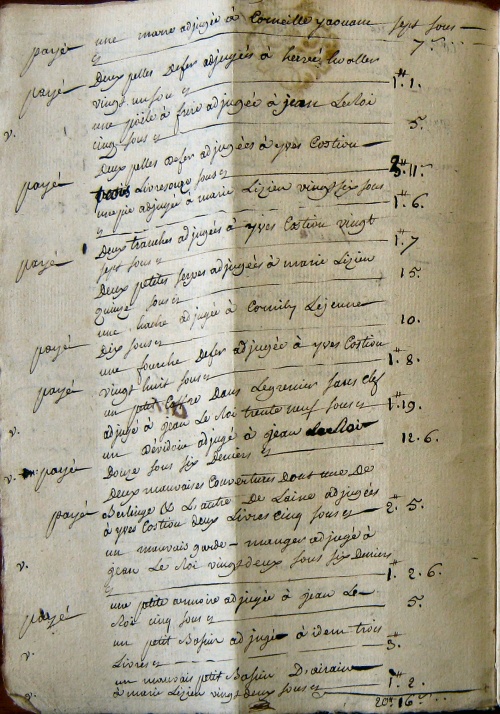 payé une marie adjugée à Corneille yaouanc sept sous 7.
payé Deux pelles Defer adjugées à hervé
vingt un sous 1.# 1.
v. une poële à frire adjugée à jean LeRoi
cinq sous 5.
Deux pelles defer adjugées à yves Costiou
payé trois Livres onze sous 3.# 11.
une pie adjugée à marie Lizien vingt six sous 1.# 6.
Deux tranches adjugées à yves Costiou vingt
payé sept sous 1.# 7
Deux petites serpes adjugées à marie Lizien
quinze sous 15.
une hache adjugée à Lejeune
payé Dix sous 10.
une fourche Defer adjugée à yves Costiou
payé vingt huit sous 1.# 8.
un petit Coffre Dans Legrenier sans clef
v. adjugé à jean Le Roi trente neuf sous 1.# 19.
un Devidoir adjugé à jean Le Roi
v. payé Douze sous six Deniers 12. 6.
Deux mauvaises Couvertures Dont une De
payé Berlinge & L'autre De Laine adjugées
à yves Costiou deux Livres cinq sous 2.# 5.
un mauvais garde-manger adjugé à
v. jean Le Roi vingt deux sous six Deniers 1.# 2. 6.
une petite armoire adjugée à jean Le
payé Roi cinq sous 5.
un petit Bassin adjugé à idem trois
v. Livres 3.#
un mauvais petit Bassin D'airain
v. à marie Lizien vingt deux sous 1.# 2.
20.# 16.